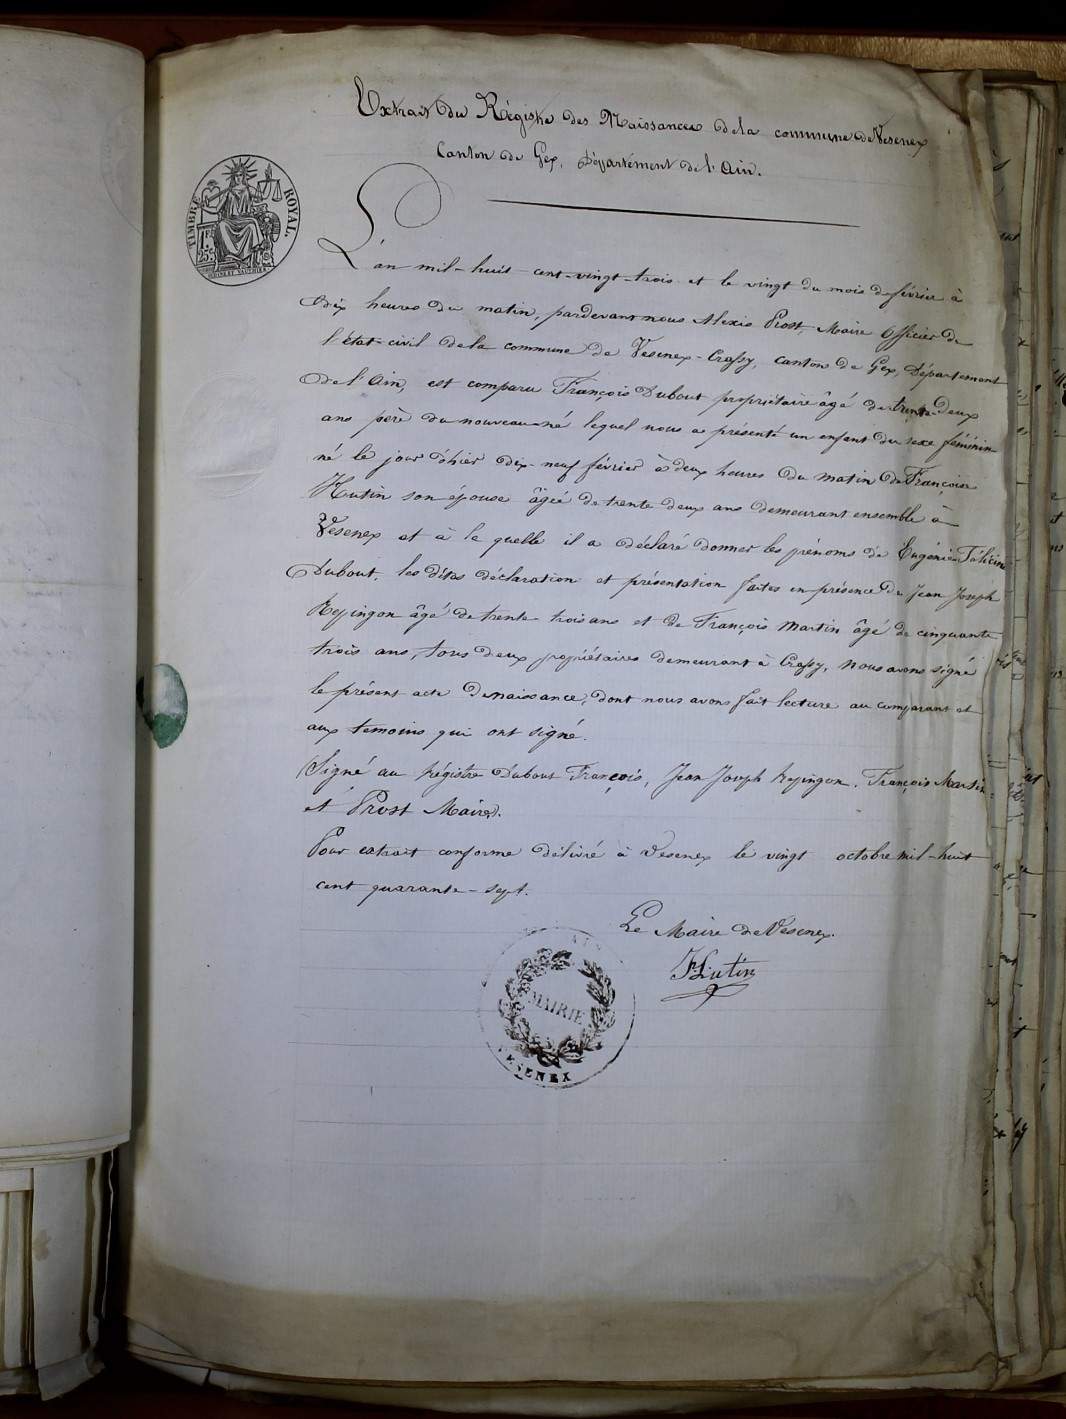 Extrait du Régistre des Naissances de la commune de Vesenex
Canton de Gex, Département de l'Ain.
TIMBRE ROYAL.
1F.
25c
L'an mil-huit-cent-vingt-trois et le vingt du mois de février à
dix heures du matin, pardevant nous Alexis Prost, Maire Officier de
l'état-civil de la commune de Vesenex-Crassy, canton de Gex, Département
de l'Ain, est comparu François Dubout propriétaire âgé de trente-deux
ans père du nouveau-né lequel nous a présenté un enfant du sexe féminin
né le jour d'hier dix-neuf février à deux heures du matin de Françoise
Hutin son épouse âgée de trente deux ans demeurant ensemble à
Vesenex et à le quelle il a déclaré donner les prénoms de Eugénie Félicie
Dubout, les dites déclaration et présentation faites en présence de Jean Joseph
Rejingon âgé de trente trois ans et de François Martin âgé de cinquante
trois ans, tous deux propriétaires demeurant à Crassy, nous avons signé
le présent acte de naissance, dont nous avons fait lecture au comparant et
aux temoins qui ont signé.
Signé au régistre Dubout François, Jean Joseph Rejingon, François Martin
et Prost Maire.
Pour extrait conforme délivré à Vesenex le vingt octobre mil-huit
cent quarante-sept.
Le Maire de Vesenex.
Hutin
MAIRIE
VESENEX